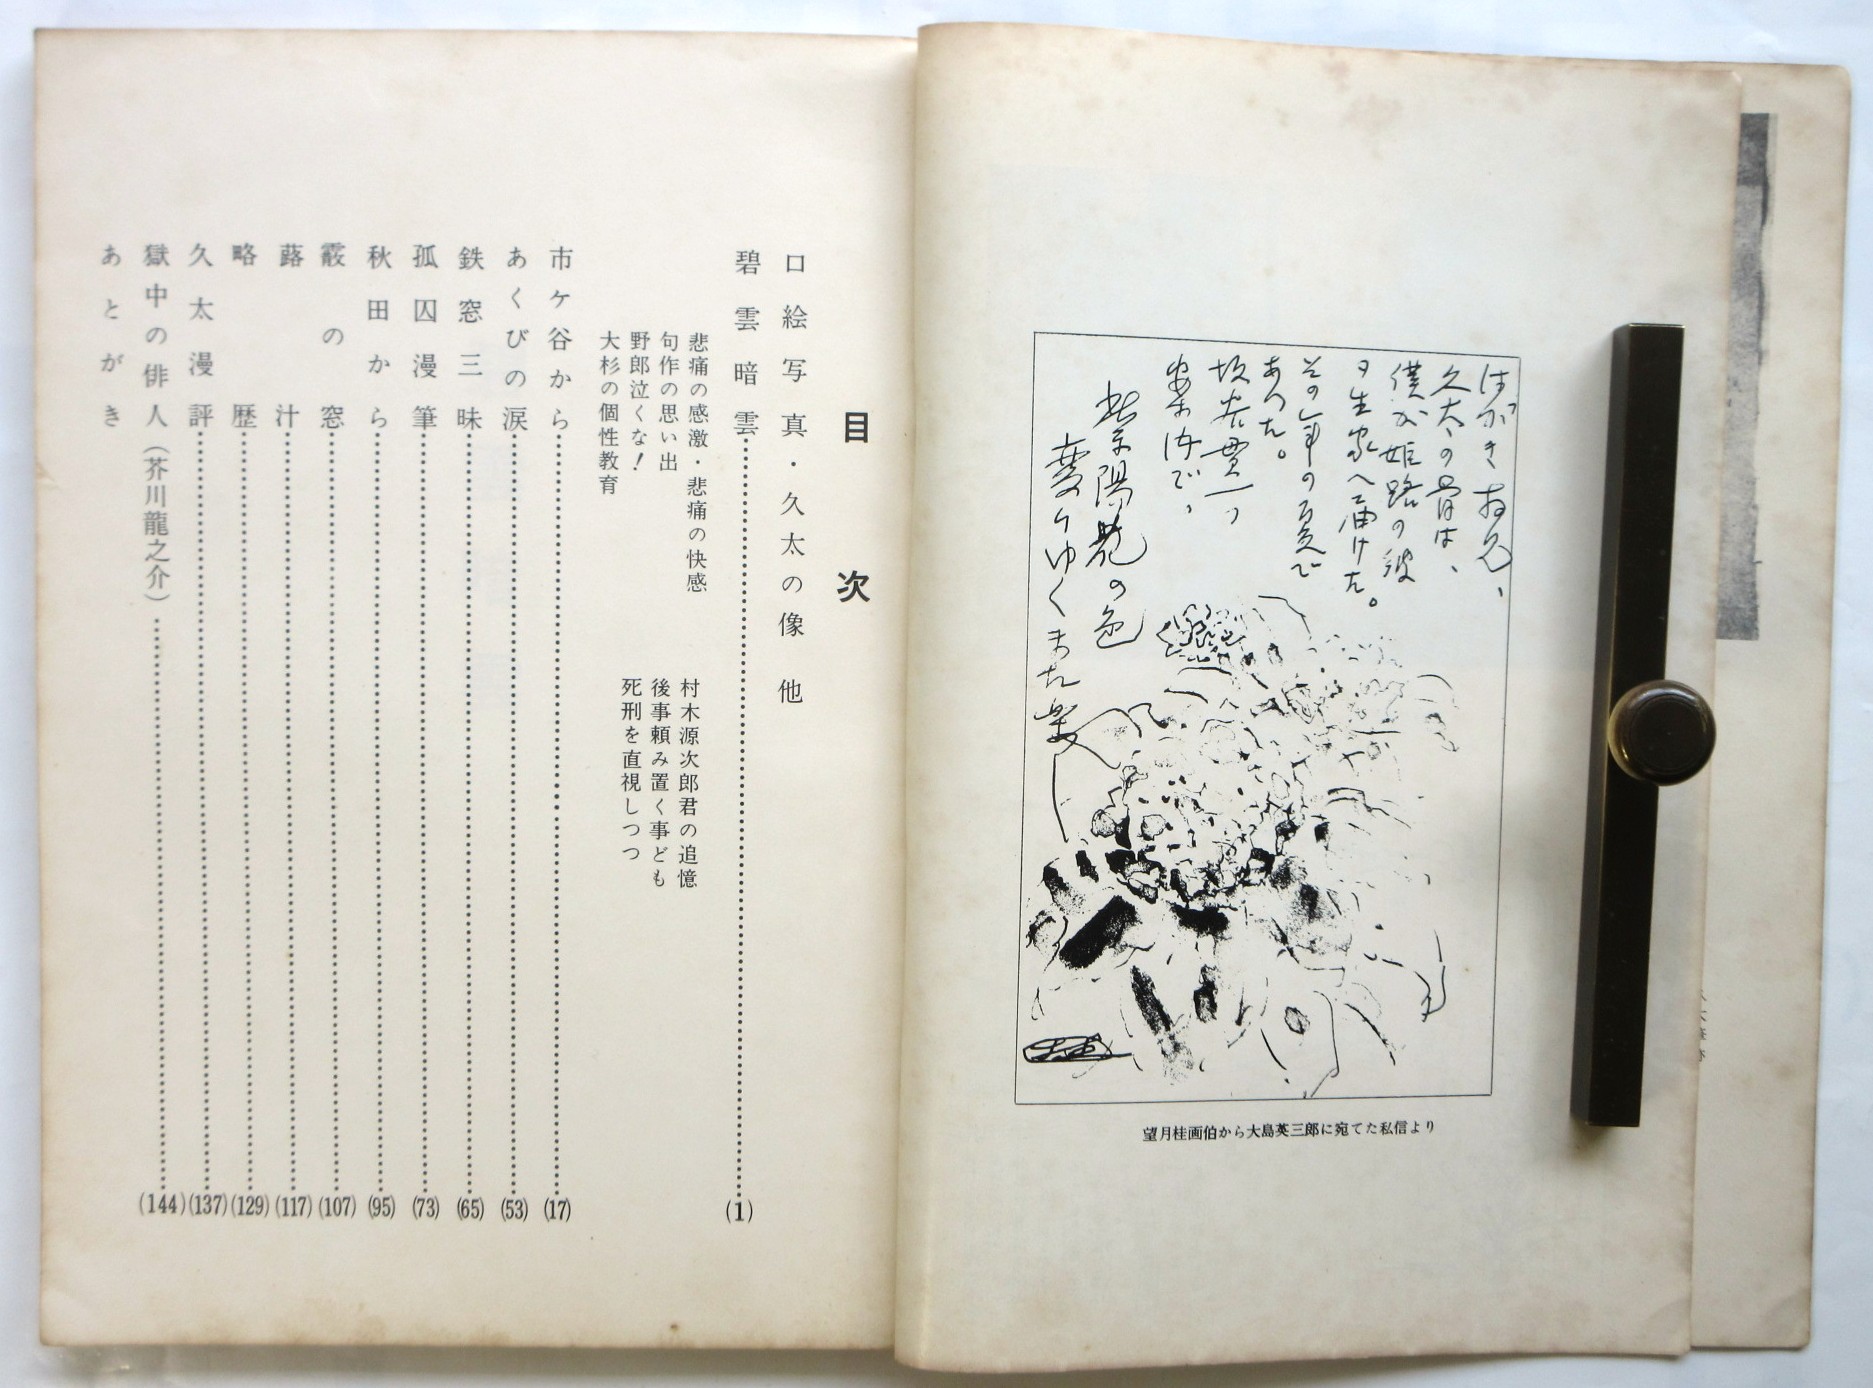 はがき拝見、
久太の骨は、
僕が姫路の彼
の生家へ届けた。
その年の夏で
あった。
案内で、
紫陽花の色
変りゆくまた変
望月桂画伯から大島英三郎に宛てた私信より
目次
口絵写真・久太の像 他
碧雲暗雲 (1)
悲痛の感激・悲痛の快感
句作の思い出
野郎泣くな!
大杉の個性教育
村木源次郎君の追憶
後事頼み置く事ども
死刑を直視しつつ
市ケ谷から (17)
あくびの涙 (53)
鉄窓三昧 (65)
孤囚漫筆 (73)
秋田から (95)
霰の窓 (107)
蕗汁 (117)
略歴 (129)
久太漫評 (137)
獄中の俳人(芥川龍之介) (144)
あとがき